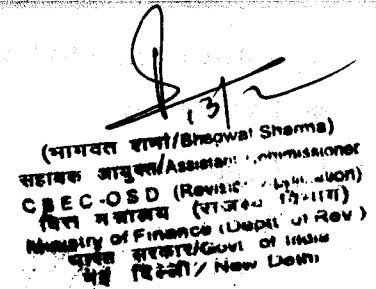 13/2
(भागवत शर्मा/Bhagwat Sharma)
सहायक आयुक्त/Assistant Commissioner
CBEC-OSD (Revision Application)
वित्त मंत्रालय (राजस्व विभाग)
Ministry of Finance (Deptt of Rev)
भारत सरकार/Govt of India
नई दिल्ली/New Delhi